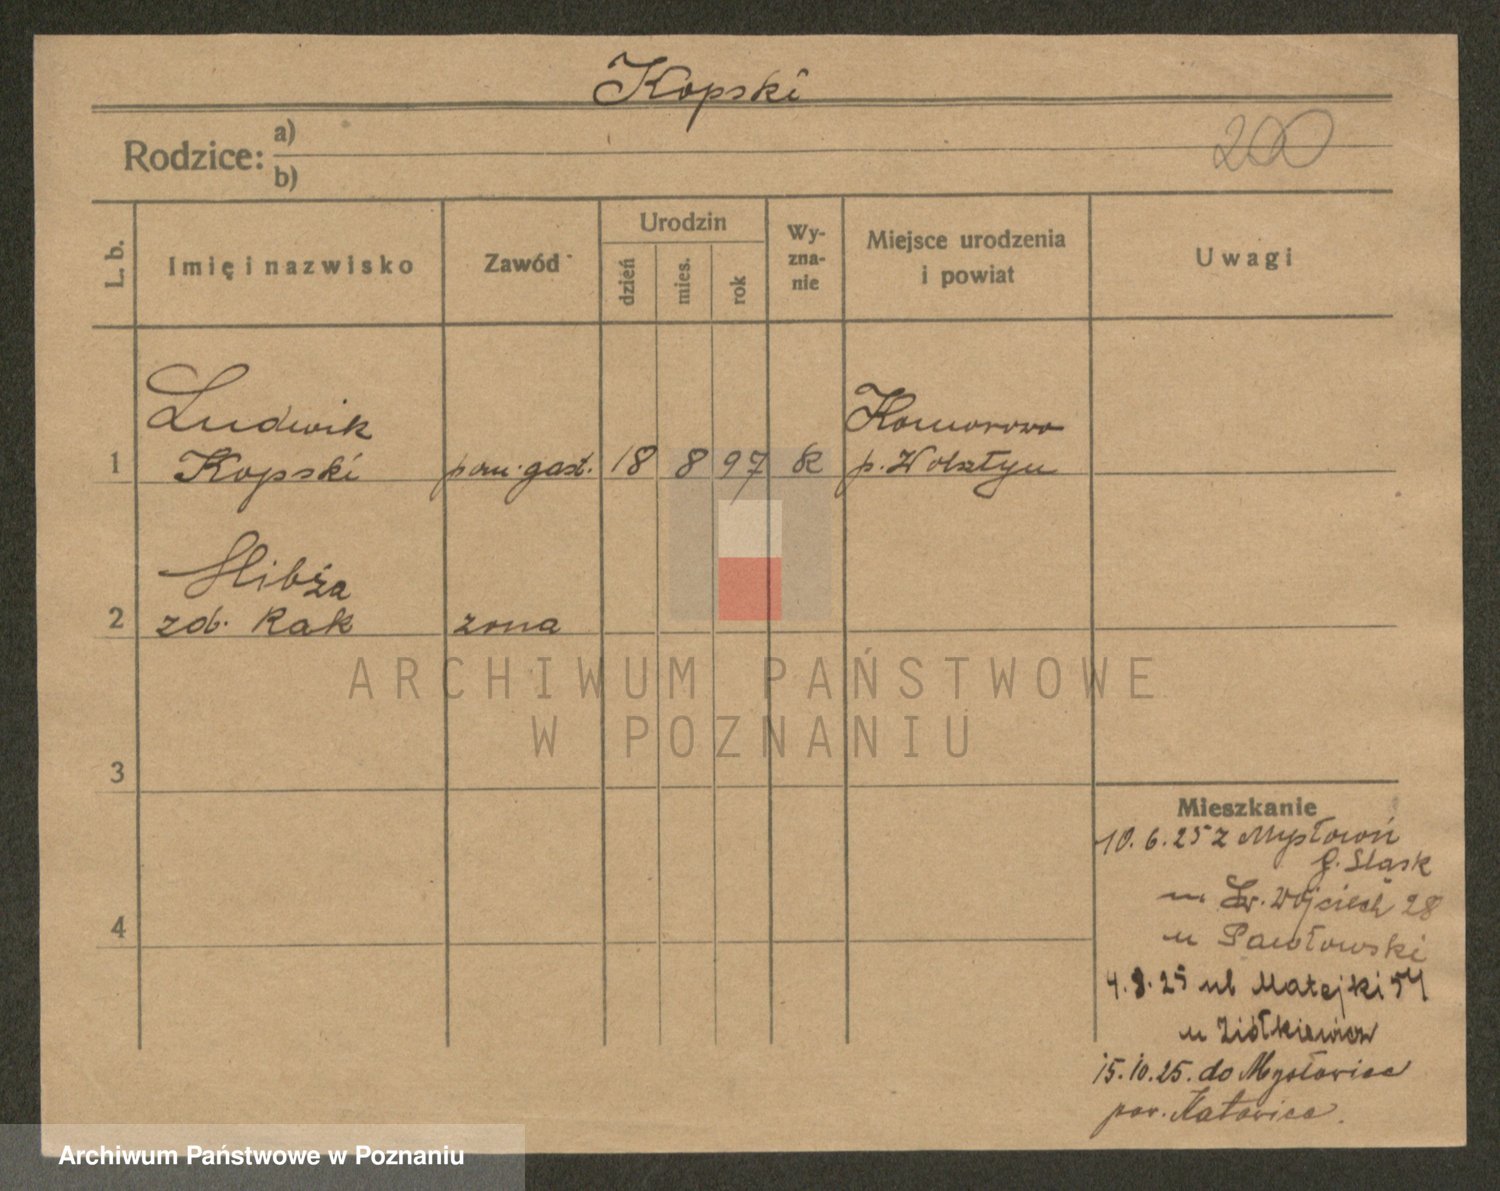 Kopski
Rodzice: a)
b)
200
L. b.
Imię i nazwisko
Zawód
Urodzin
dzień
mies.
rok
Wy-
zna-
nie
Miejsce urodzenia
i powiat
Uwagi
1
Ludwik
Kopski
pom. gast.
18
8
97
K
Komorowo
p. Wolsztyn
2
zd. Rak
żona
3
4
Mieszkanie
10.6.25 z Mysłowic
G. Sląsk
Św. Wojciech 28
u Pawłowski
4.8.25 ul Matejki 54
u Ziółkiewicz
15.10.25. do Mysłowice
pow. Katowice.
ARCHIWUM PAŃSTWOWE
W POZNANIU
Archiwum Państwowe w Poznaniu